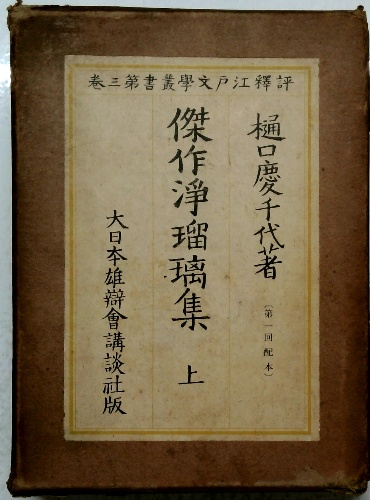 評釋江戸文學叢書第三卷
樋口慶千代著
(第一回配本)
傑作淨瑠璃集 上
大日本雄辯會講談社版